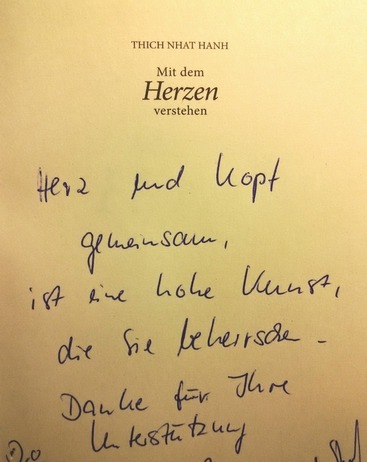 THICH NHAT HANH
Mit dem
Herzen
verstehen
Herz und Kopf
gemeinsam,
ist eine hohe Kunst,
die Sie beherrschen -
Danke für Ihre
Unterstützung